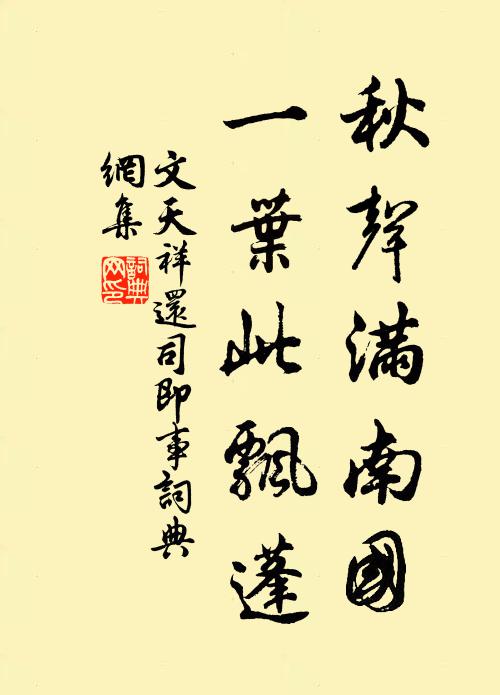 秋聲滿南國
一葉此飄蓬
文天祥還司即事詞典
網集
詞典網印